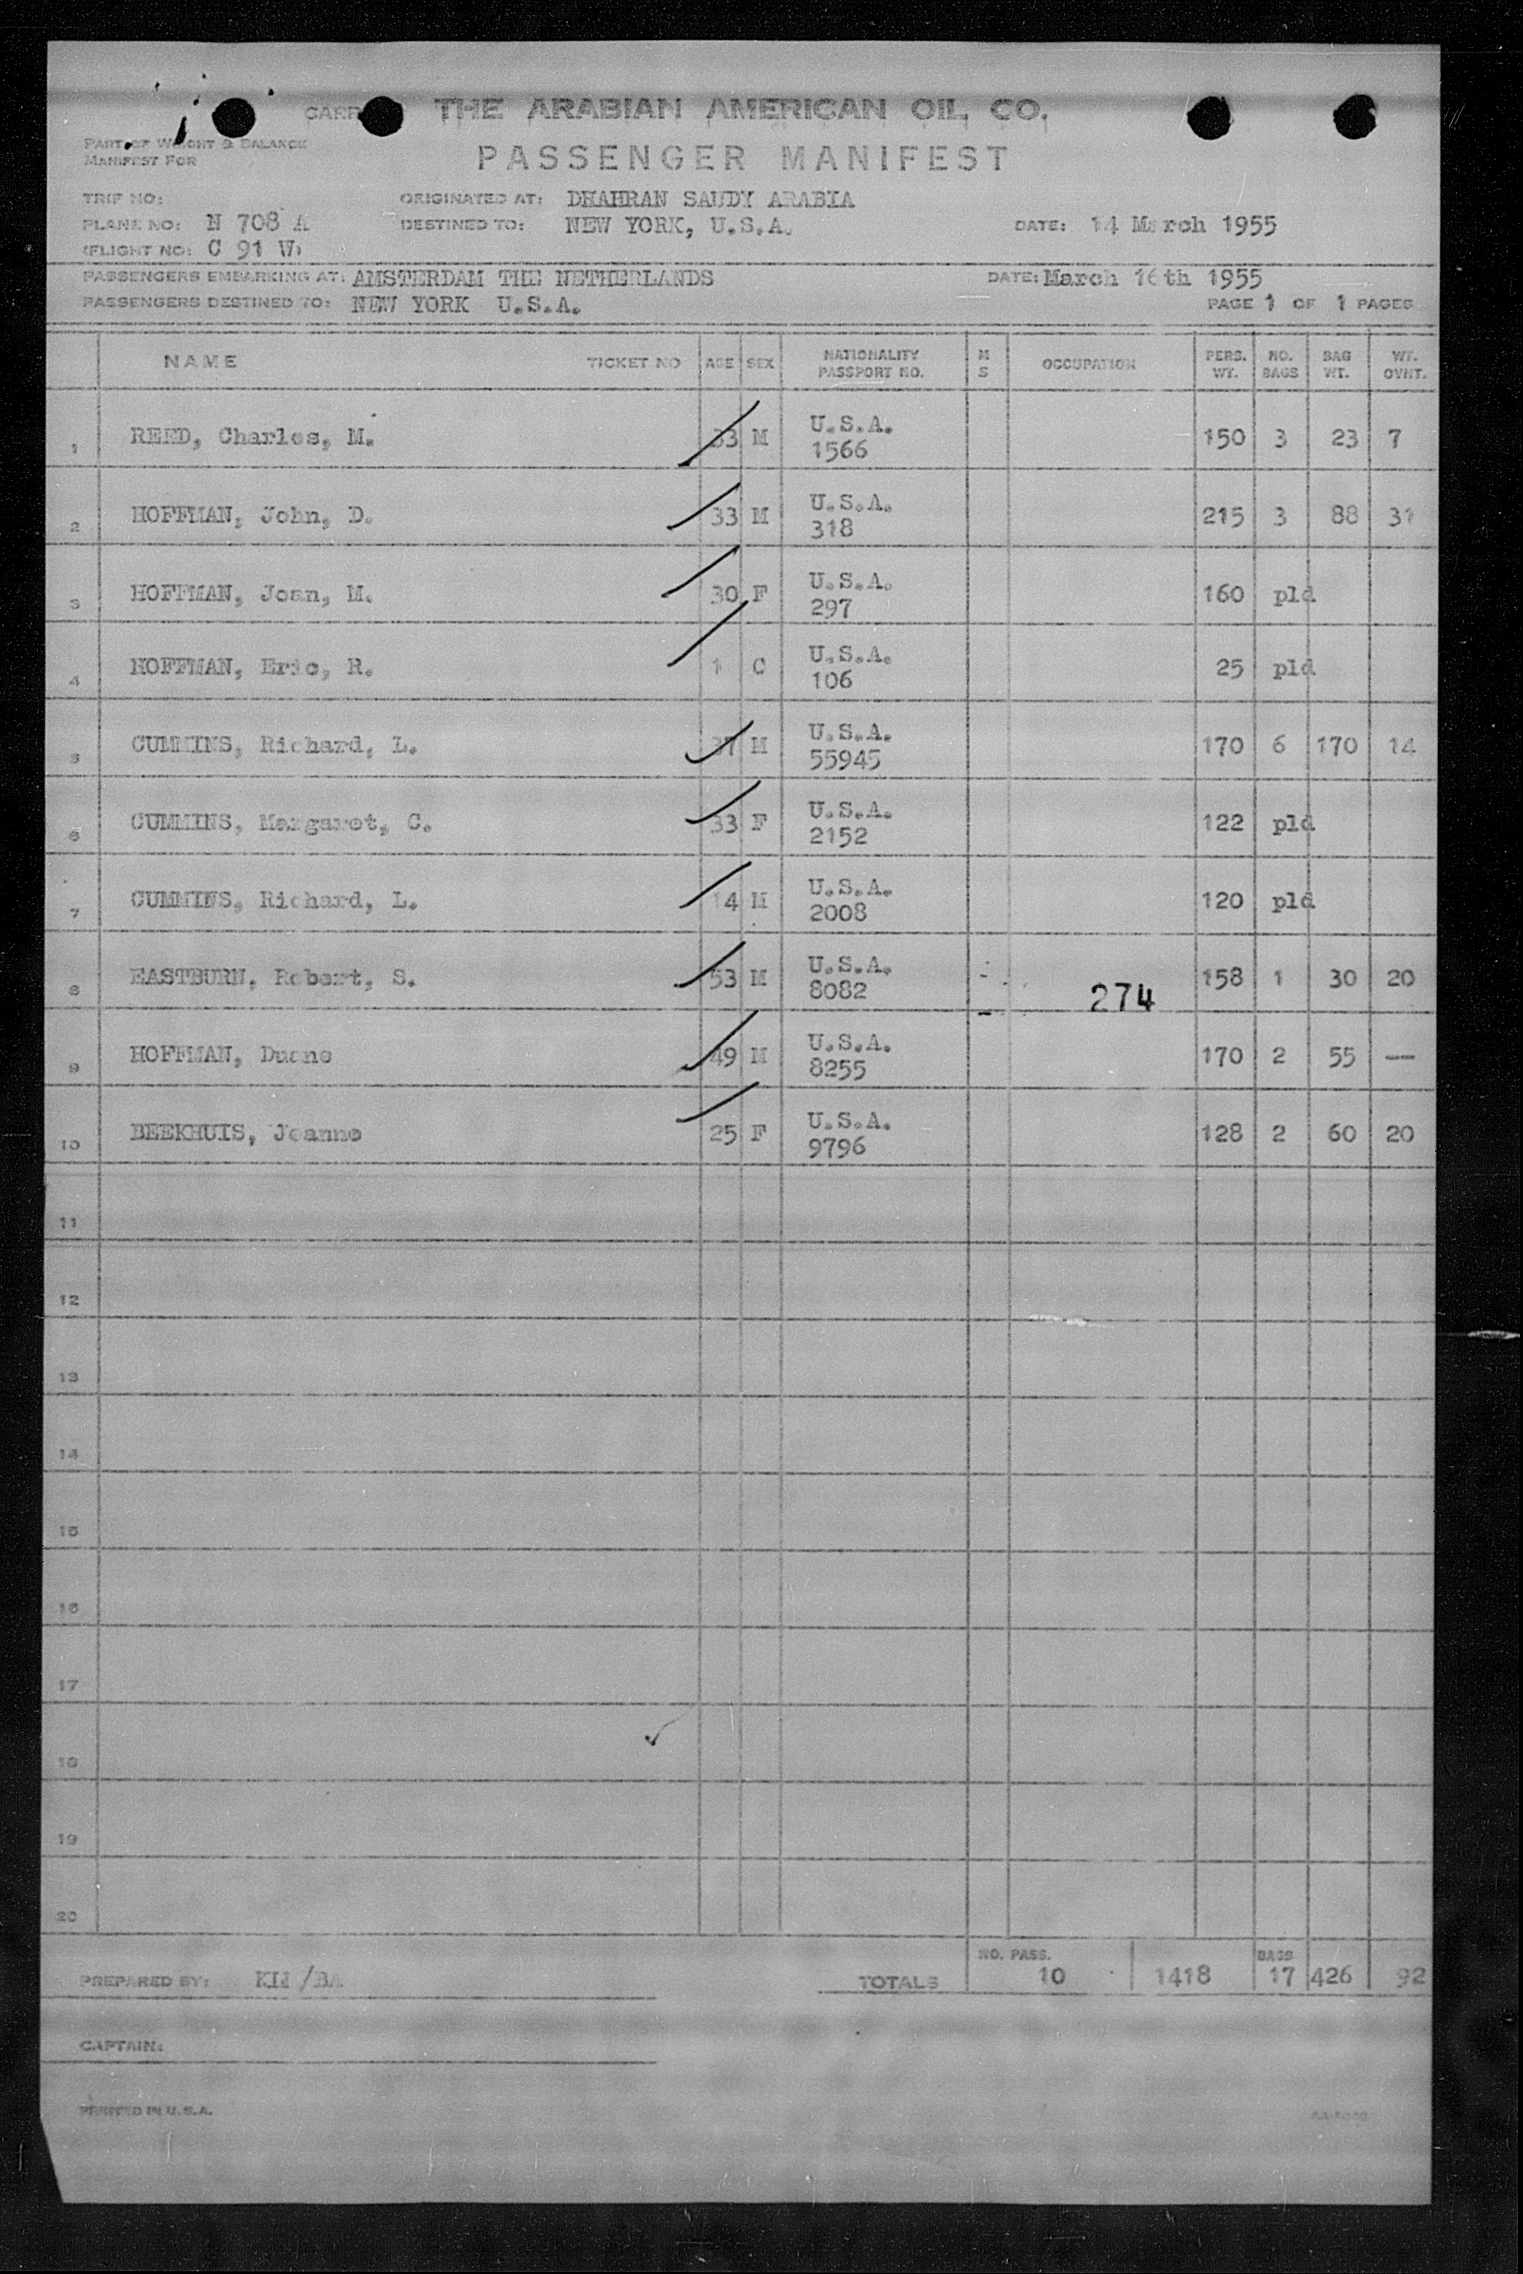 THE ARABIAN AMERICAN OIL CO.
PART OF WEIGHT & BALANCE
MANIFEST FOR
PASSENGER MANIFEST
TRIP NO:
ORIGINATED AT: DHAHRAN SAUDY ARABIA
PLANE NO: N 708 A
DESTINED TO: NEW YORK, U.S.A.
DATE: 14 March 1955
(FLIGHT NO: C 91 W)
PASSENGERS EMBARKING AT: AMSTERDAM THE NETHERLANDS DATE: March 16th 1955
PASSENGERS DESTINED TO: NEW YORK U.S.A. PAGE 1 OF 1 PAGES
NAME TICKET NO AGE SEX NATIONALITY PASSPORT NO. M S OCCUPATION PERS. WT. NO. BAGS BAG WT. WT. OVHT.
1 REED, Charles, M. 33 M U.S.A. 1566 150 3 23 7
2 HOFFMAN, John, D. 33 M U.S.A. 318 215 3 88 31
3 HOFFMAN, Joan, M. 30 F U.S.A. 297 160 pld
4 HOFFMAN, Eric, R. 1 C U.S.A. 106 25 pld
5 CUMMINS, Richard, L. 37 M U.S.A. 55945 170 6 170 14
6 CUMMINS, Margaret, C. 33 F U.S.A. 2152 122 pld
7 CUMMINS, Richard, L. 14 M U.S.A. 2008 120 pld
8 EASTBURN, Robert, S. 53 M U.S.A. 8082 274 158 1 30 20
9 HOFFMAN, Duane 49 M U.S.A. 8255 170 2 55 --
10 BEEKHUIS, Jeanne 25 F U.S.A. 9796 128 2 60 20
11
12
13
14
15
16
17
18
19
20
PREPARED BY: KM/BA TOTALS NO. PASS. 10 1418 BAGS 17 426 92
CAPTAIN:
PRINTED IN U.S.A.